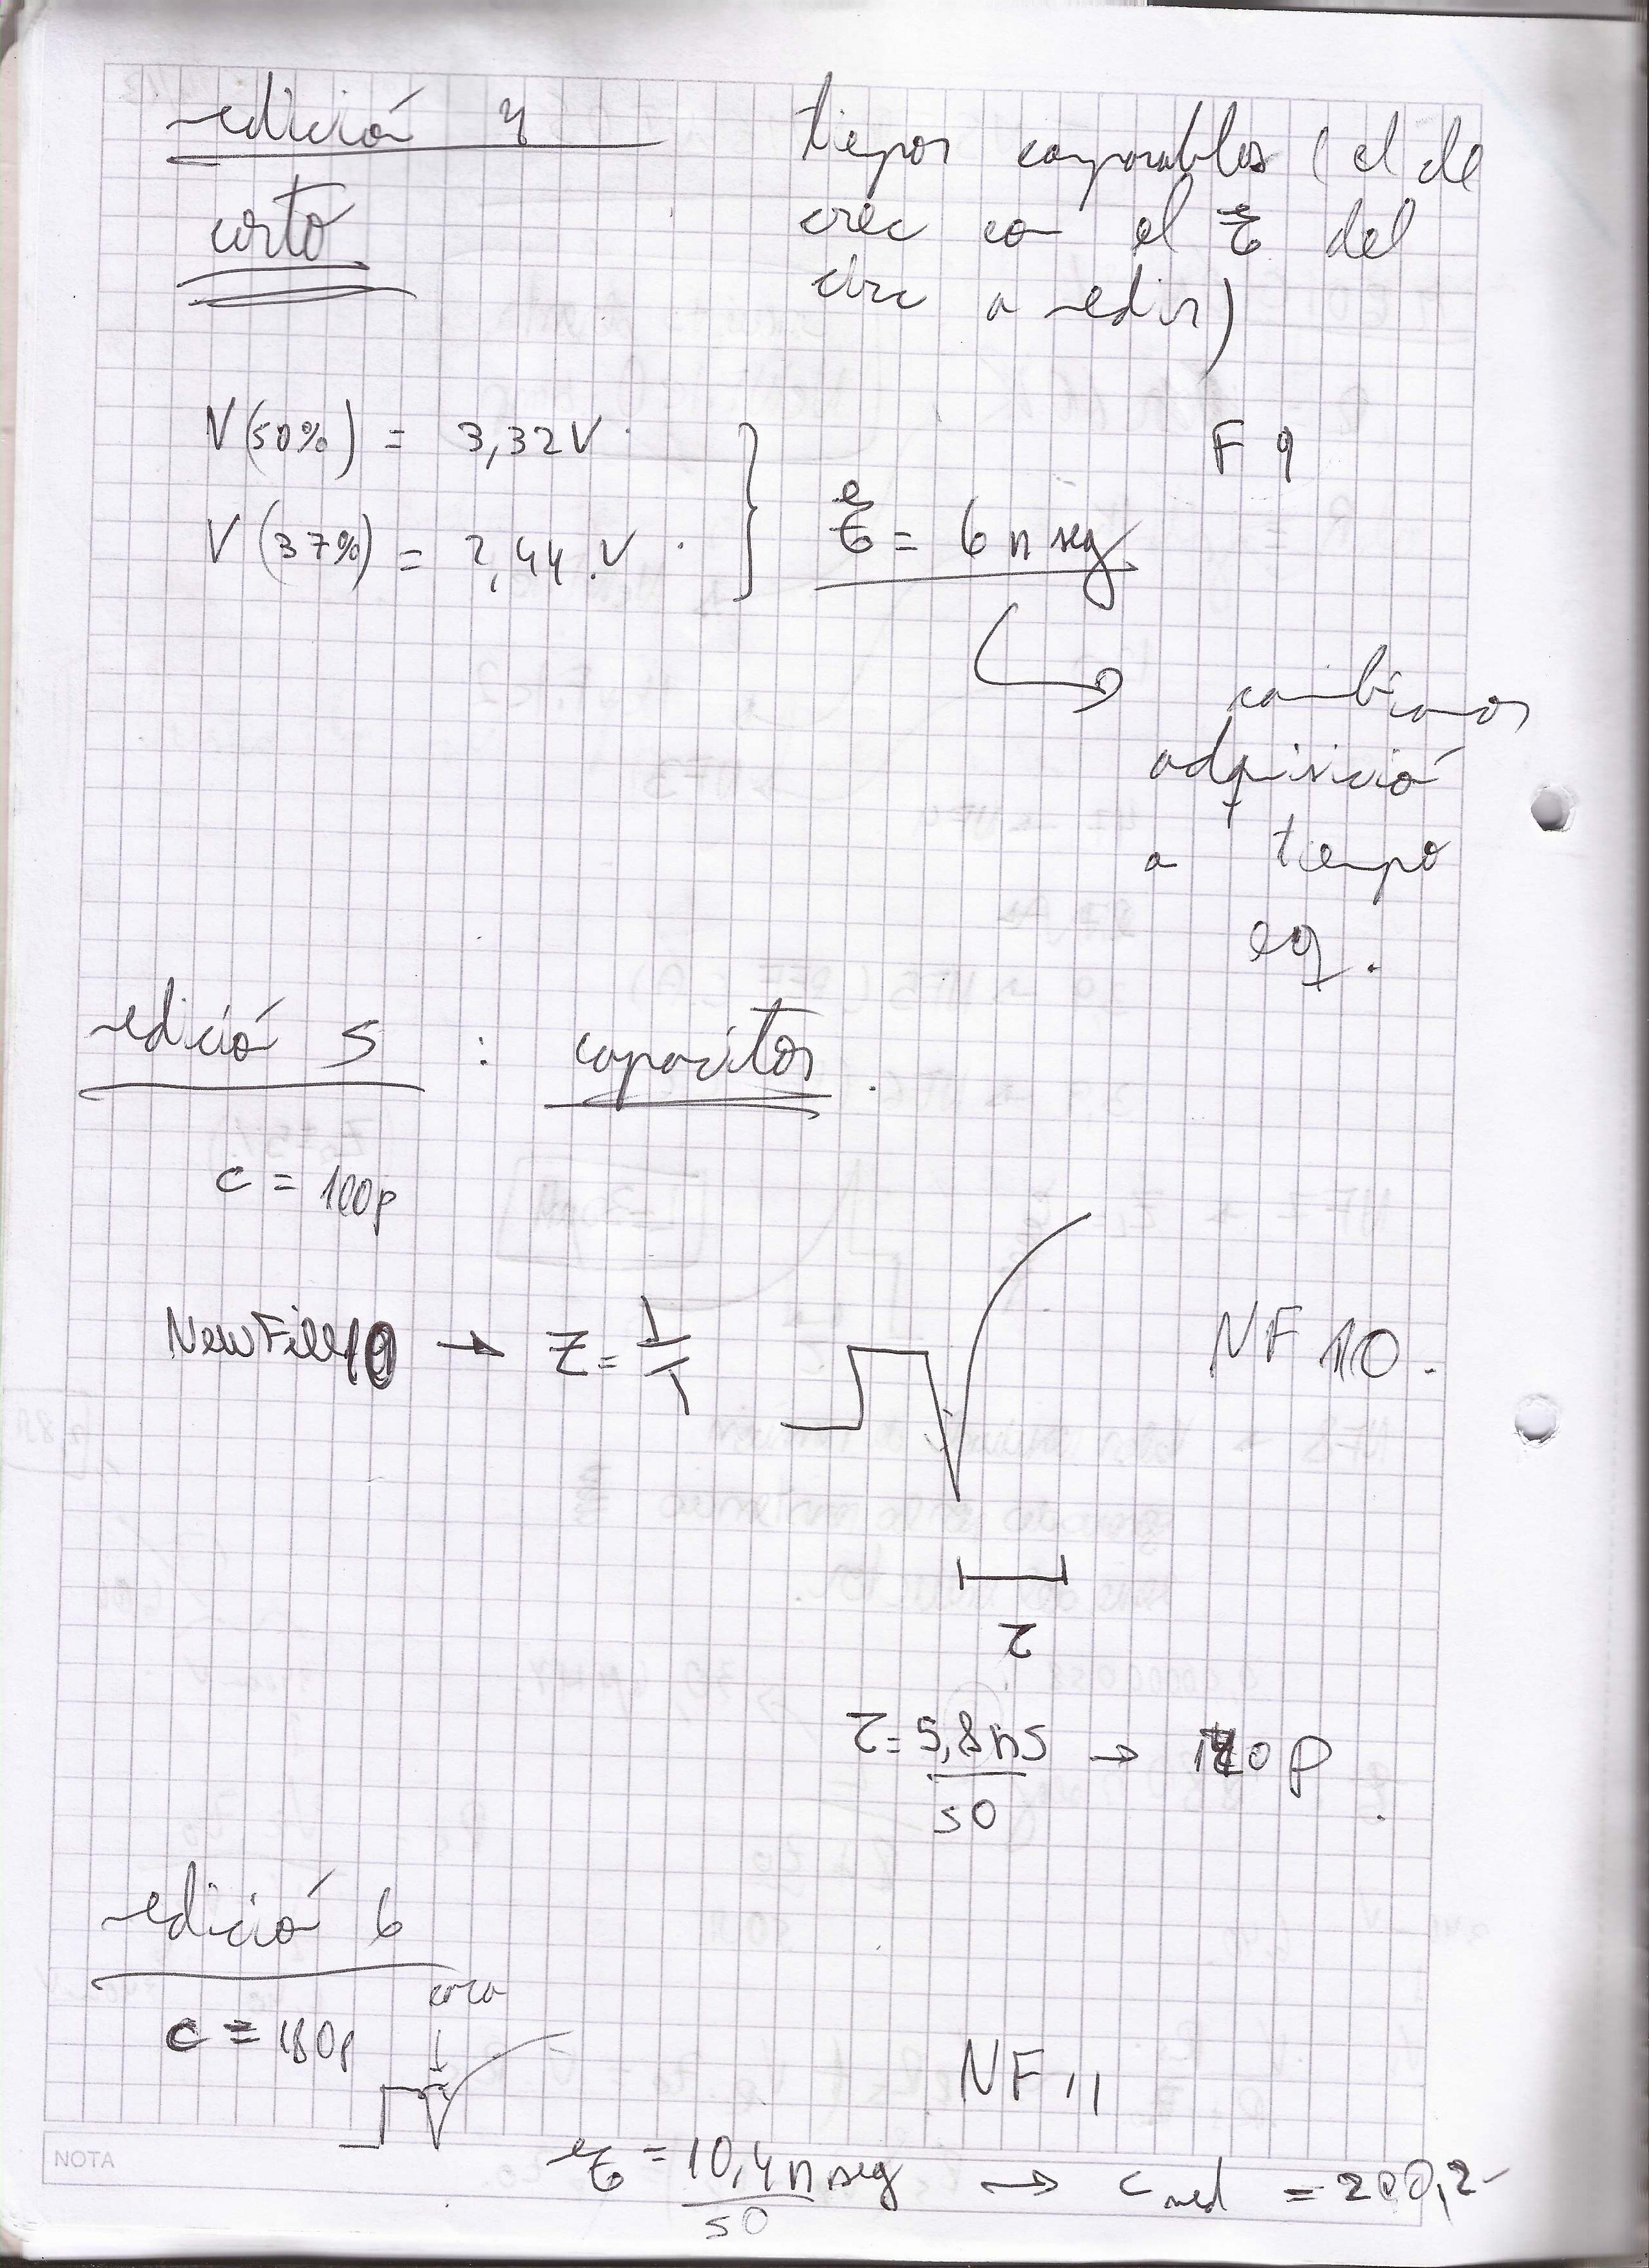 medición 4
corto
tiempos comparables (el de
crec con el τ del
circ a medir)
V(50%) = 3,32V
V(37%) = 2,44 V
τ = 6 n seg
F 9
cambiamos
adquisición
a tiempo
eq.
medición 5 : capacitor
C = 100p
NewFile10 → Z =
NF 10.
τ
τ = 5,8ns → p
50
medición 6
C = 180p
NF 11
τ = 10,4 n seg → C med =
50
NOTA